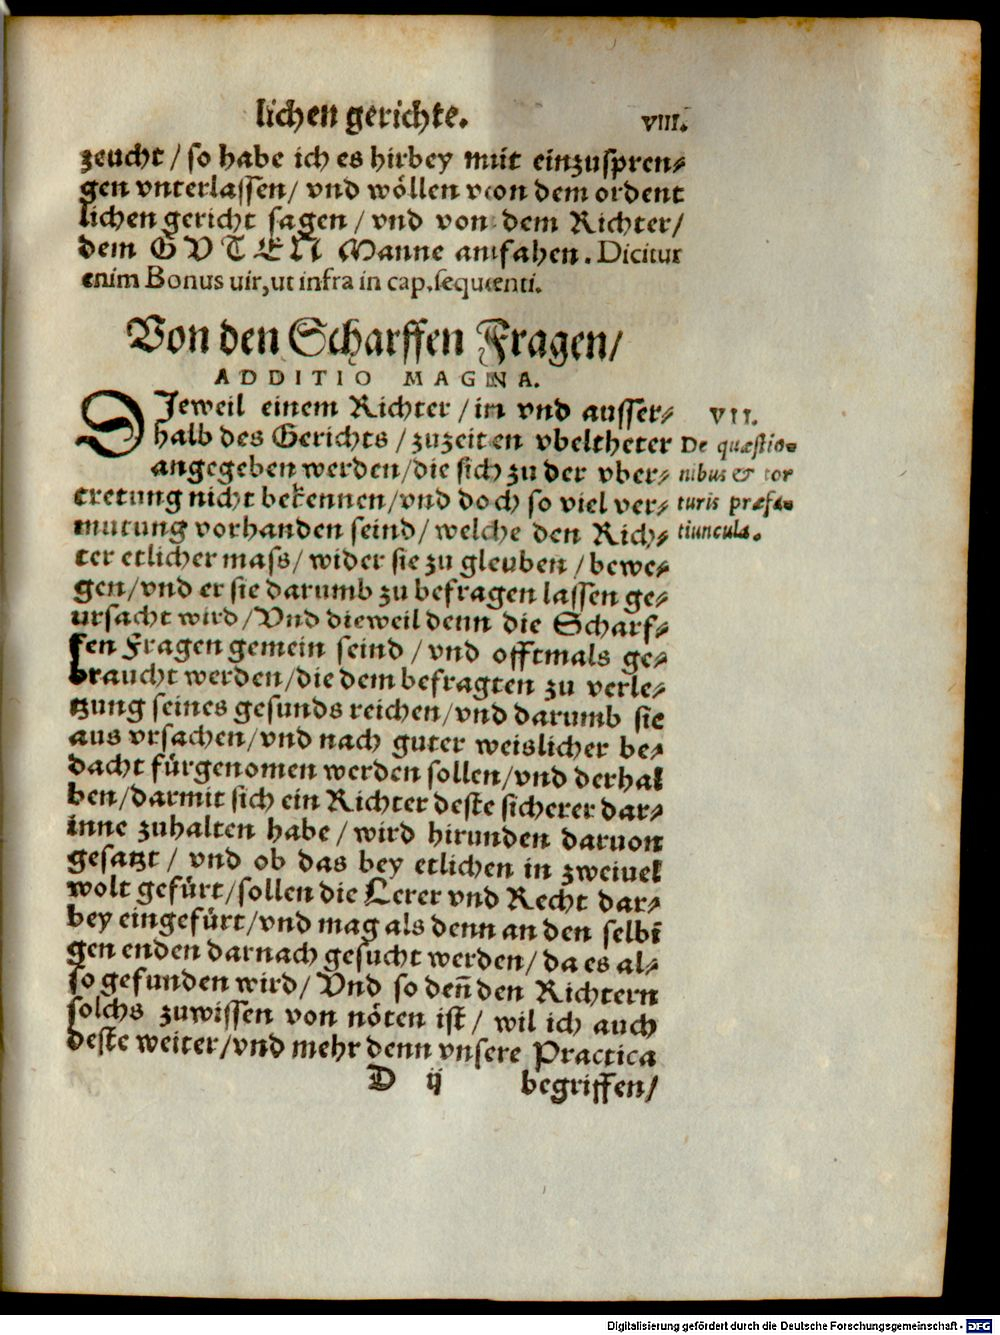 lichen gerichte. VIII.
zeucht / so habe ich es hirbey mit einzuspren⸗
gen vnterlassen / vnd wöllen von dem ordent
lichen gericht sagen / vnd von dem Richter /
dem GVTEN Manne anfahen. Dicitur
enim Bonus uir, ut infra in cap. sequenti.
Von den Scharffen Fragen /
ADDITIO MAGNA.
DJeweil einem Richter / in vnd ausser⸗ VII.
halb des Gerichts / zuzeiten vbeltheter De quæstio⸗
angegeben werden / die sich zu der vber⸗ nibus & tor
tretung nicht bekennen / vnd doch so viel ver⸗ turis præfa⸗
mutung vorhanden seind / welche den Rich⸗ tiuncula.
ter etlicher mass / wider sie zu gleuben / bewe⸗
gen / vnd er sie darumb zu befragen lassen ge⸗
ursacht wird / Vnd dieweil denn die Scharf⸗
fen Fragen gemein seind / vnd offtmals ge⸗
braucht werden / die dem befragten zu verle⸗
tzung seines gesunds reichen / vnd darumb sie
aus vrsachen / vnd nach guter weislicher be⸗
dacht fürgenomen werden sollen / vnd derhal
ben / darmit sich ein Richter deste sicherer dar⸗
inne zuhalten habe / wird hirunden daruon
gesatzt / vnd ob das bey etlichen in zweiuel
wolt gefürt / sollen die Lerer vnd Recht dar⸗
bey eingefürt / vnd mag als denn an den selbē
gen enden darnach gesucht werden / da es al⸗
so gefunden wird / Vnd so deñ den Richtern
solchs zuwissen von nöten ist / wil ich auch
deste weiter / vnd mehr denn vnsere Practica
D ij begriffen /
Digitalisierung gefördert durch die Deutsche Forschungsgemeinschaft - DFG